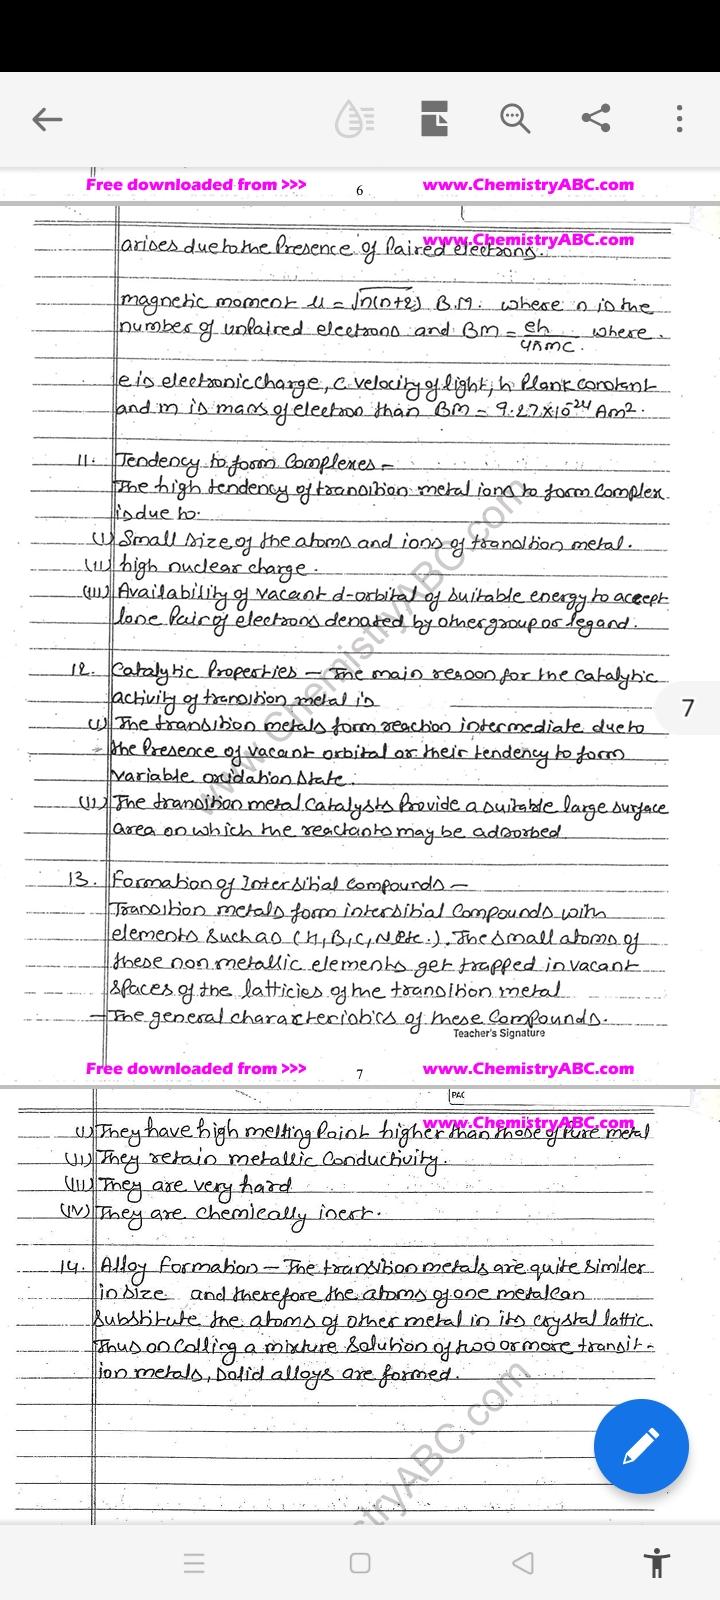 Free downloaded from >>> 6 www.ChemistryABC.com
www.ChemistryABC.com
arises due to the Presence of Paired electrons.
magnetic moment μ = √n(n+2) B.M. where n is the
number of unpaired electrons and BM = eh/4πmc. where.
e is electronic charge, c velocity of light, h Plank constant
and m is mass of electron than BM = 9.27×10⁻²⁴ Am².
11. Tendency to form Complexes –
The high tendency of transition metal ions to form Complex
is due to.
(i) Small size of the atoms and ions of transition metal.
(ii) high nuclear charge.
(iii) Availability of vacant d-orbital of suitable energy to accept
lone Pair of electrons denated by other group or legand.
12. Catalytic Properties – The main reson for the Catalytic
activity of transition metal is
(i) The transition metals form reaction intermediate due to
the Presence of vacant orbital or their tendency to form
variable oxidation state.
(ii) The transition metal Catalysts Provide a suitable large surface
area on which the reactants may be adsorbed
7
13. Formation of Intersitial Compounds –
Transition metals form intersitial Compounds with
elements such as (H, B, C, N etc.). The small atoms of
these non metallic elements get trapped in vacant
spaces of the latticies of the transition metal
– The general characteriotics of these Compounds.
Teacher's Signature
Free downloaded from >>> 7 www.ChemistryABC.com
PAG
www.ChemistryABC.com
(i) They have high melting Point higher than those of Pure metal
(ii) They retain metallic Conductivity.
(iii) They are very hard
(iv) They are chemically inert.
14. Alloy Formation – The transition metals are quite similer
in size and therefore the atoms of one metal can
Substitute the atoms of other metal in its crystal lattic.
Thus on Colling a mixture Solution of two or more transit-
ion metals, Solid alloys are formed.
www.ChemistryABC.com
istryABC.com